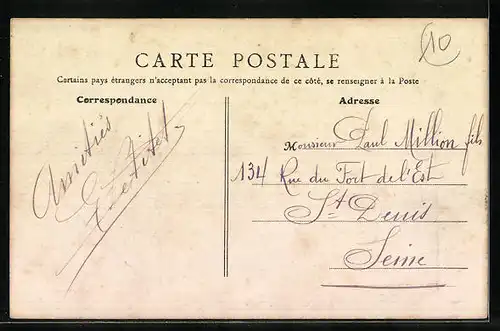 10
CARTE POSTALE
Certains pays étrangers n'acceptant pas la correspondance de ce côté, se renseigner à la Poste
Correspondance
Adresse
Amitiés
Monsieur Paul Million fils
134 Rue du Fort de l'Est
St Denis
Seine